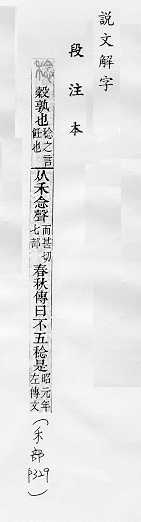 說文解字
段注本
稔 穀孰也稔之言飪也从禾念聲而甚切七部春秋傳曰不五稔是昭元年左傳文(禾部P329)